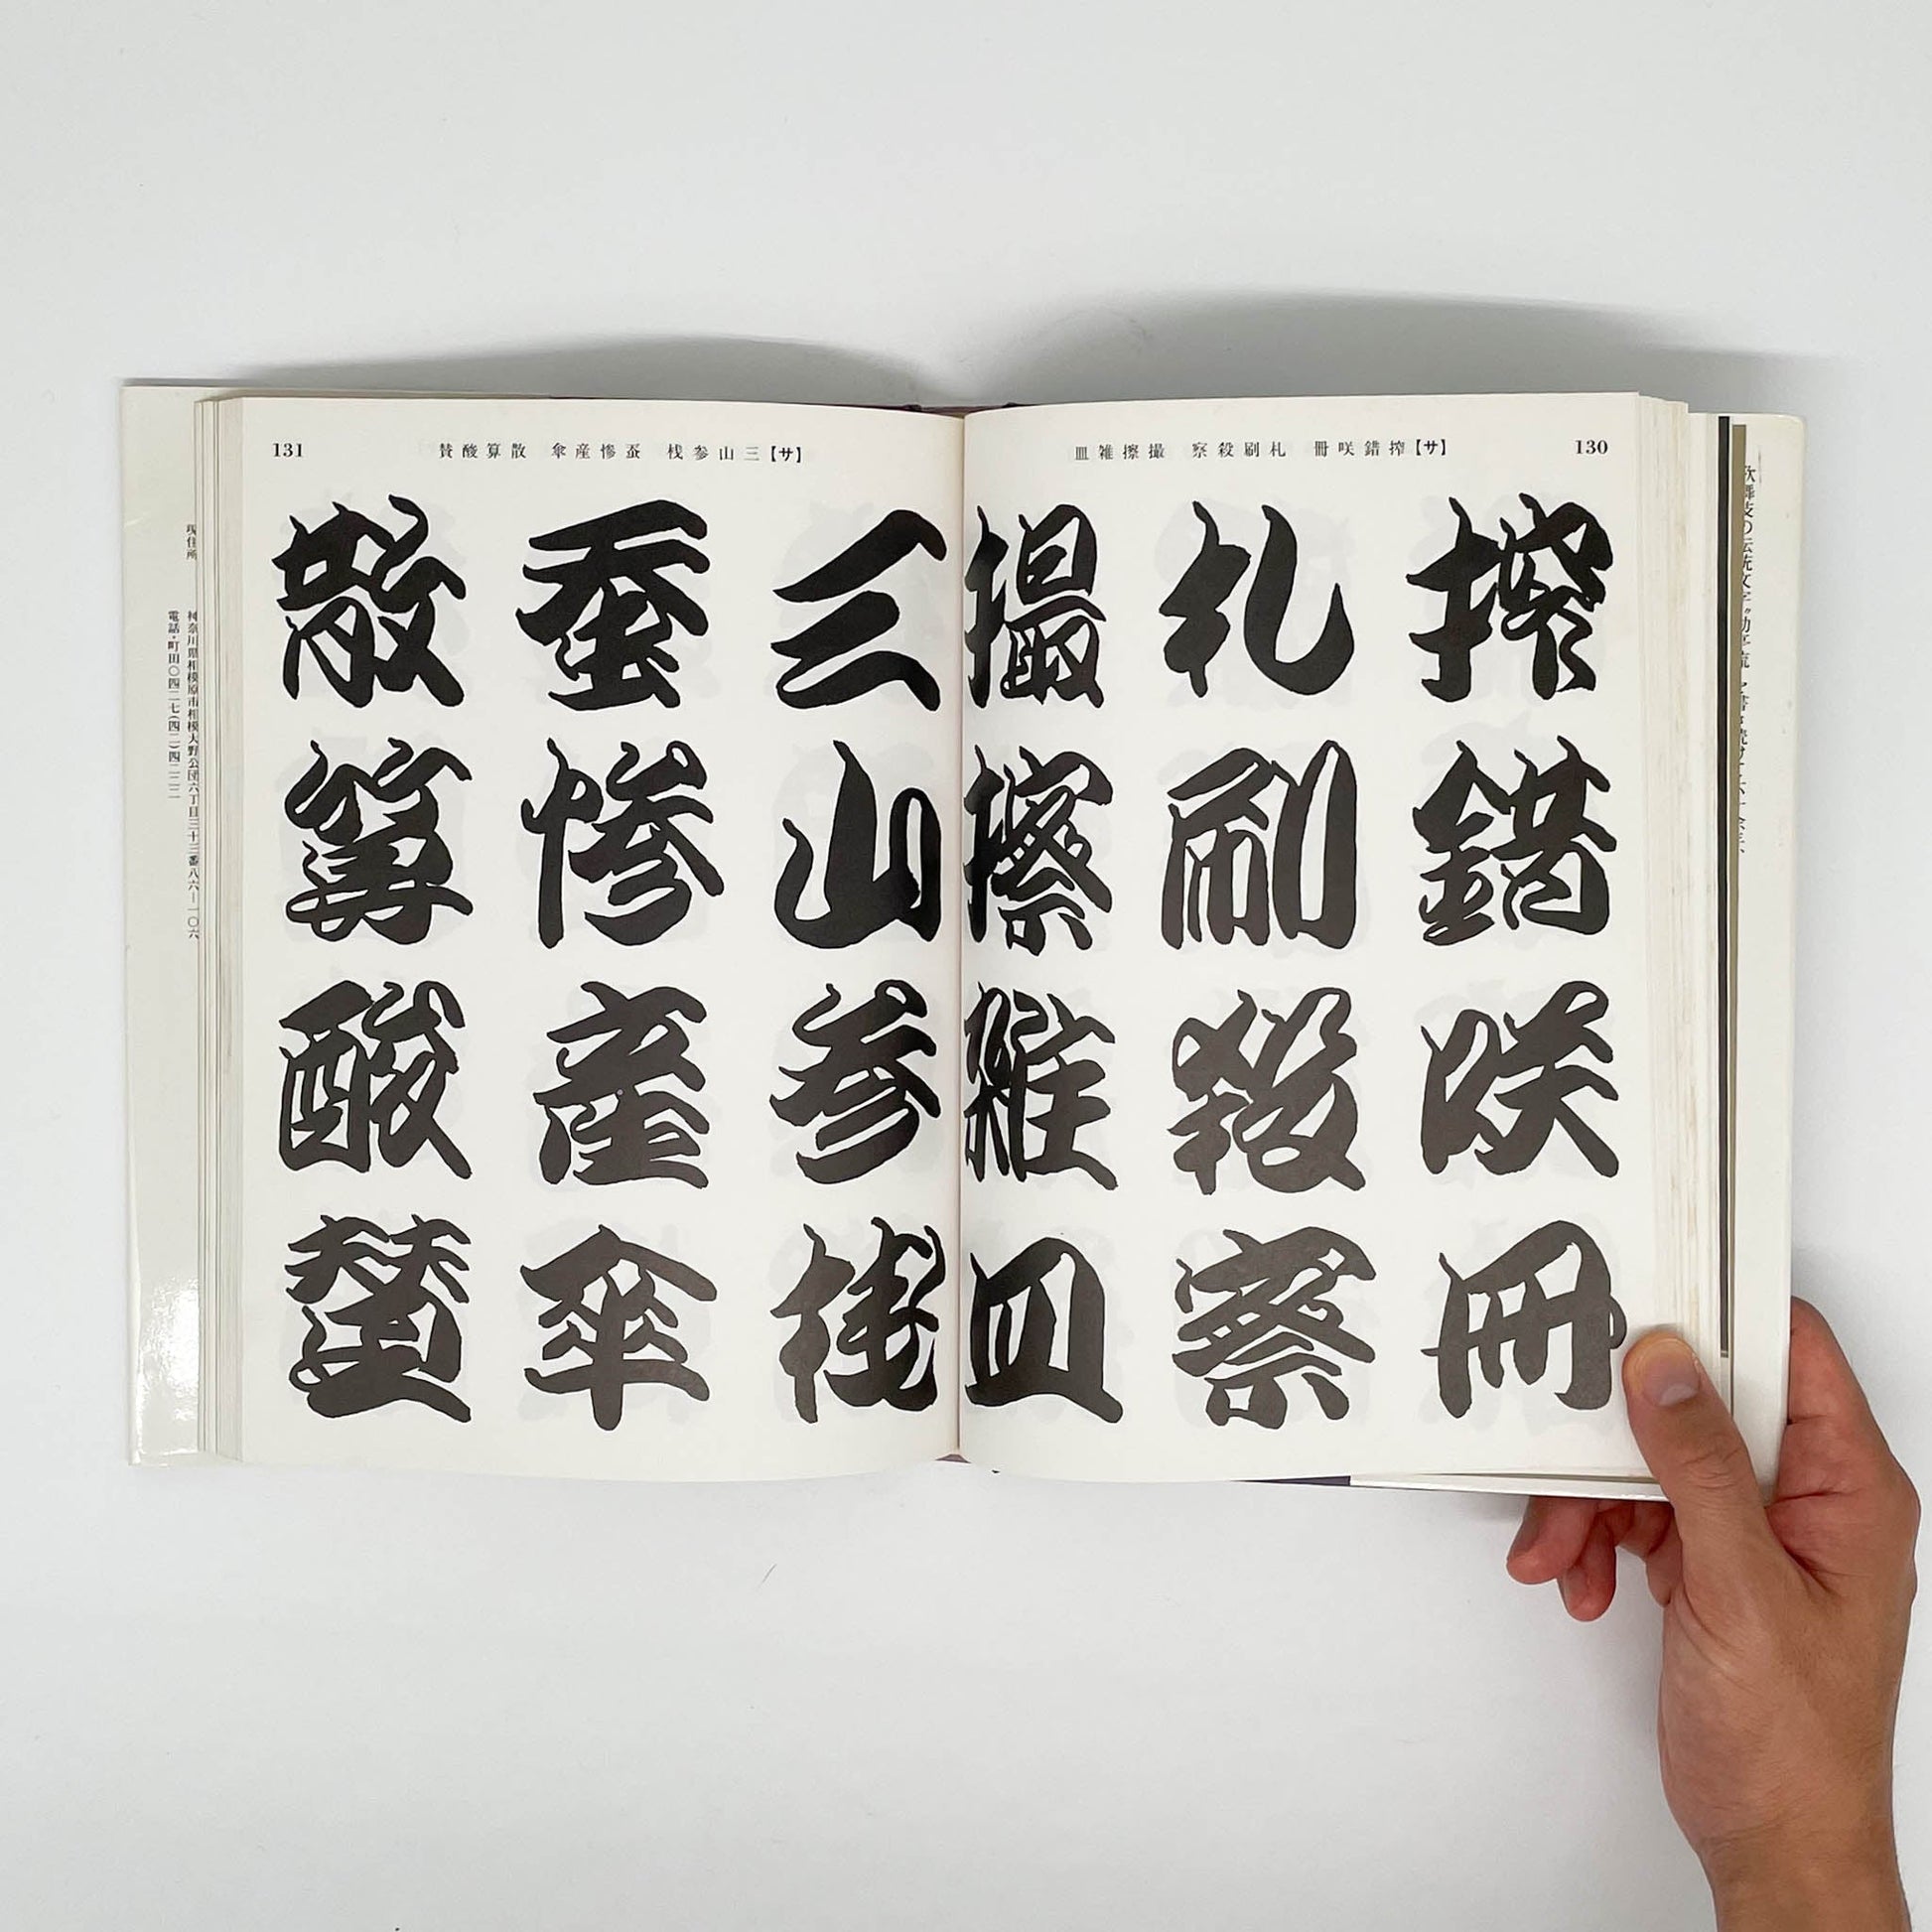 130
【サ】搾錯咲冊 札刷殺察 撮擦雑皿
搾錯咲冊
札刷殺察
撮擦雑皿
131
【サ】三山参桟 蚕惨産傘 散算酸賛
三山参桟
蚕惨産傘
散算酸賛
現住所 神奈川県相模原市相模大野公団六丁目三十三番八六―一〇六
電話・町田〇四二七(四二)四二二二